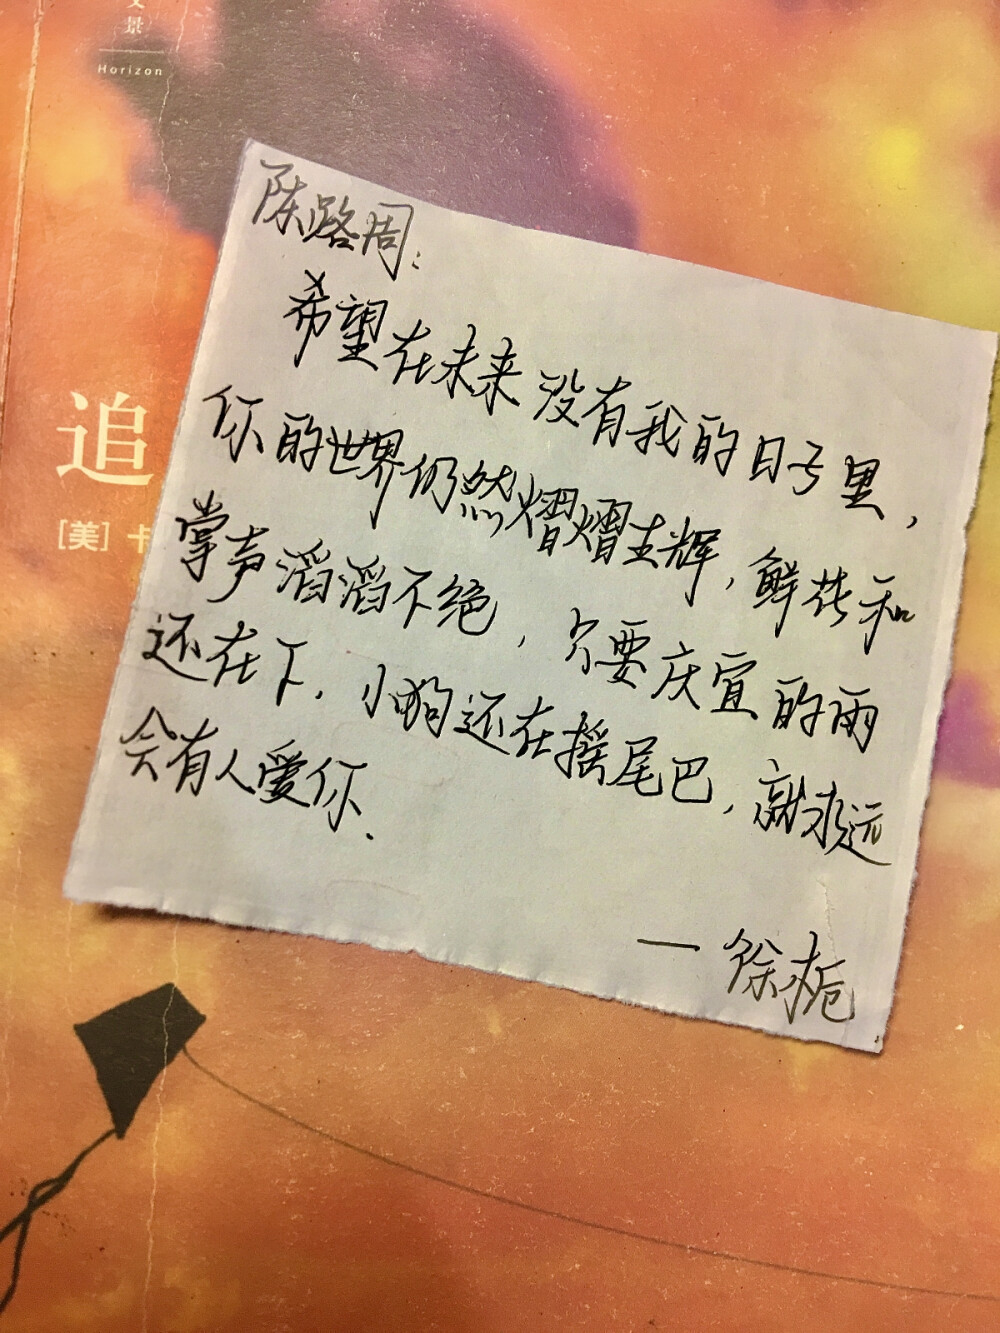 文
景
Horizon
追
[美] 卡
陈路周:
希望在未来没有我的日子里,
你的世界仍然熠熠生辉,鲜花和
掌声滔滔不绝,只要庆宜的雨
还在下,小狗还在摇尾巴,就永远
会有人爱你.
一徐栀